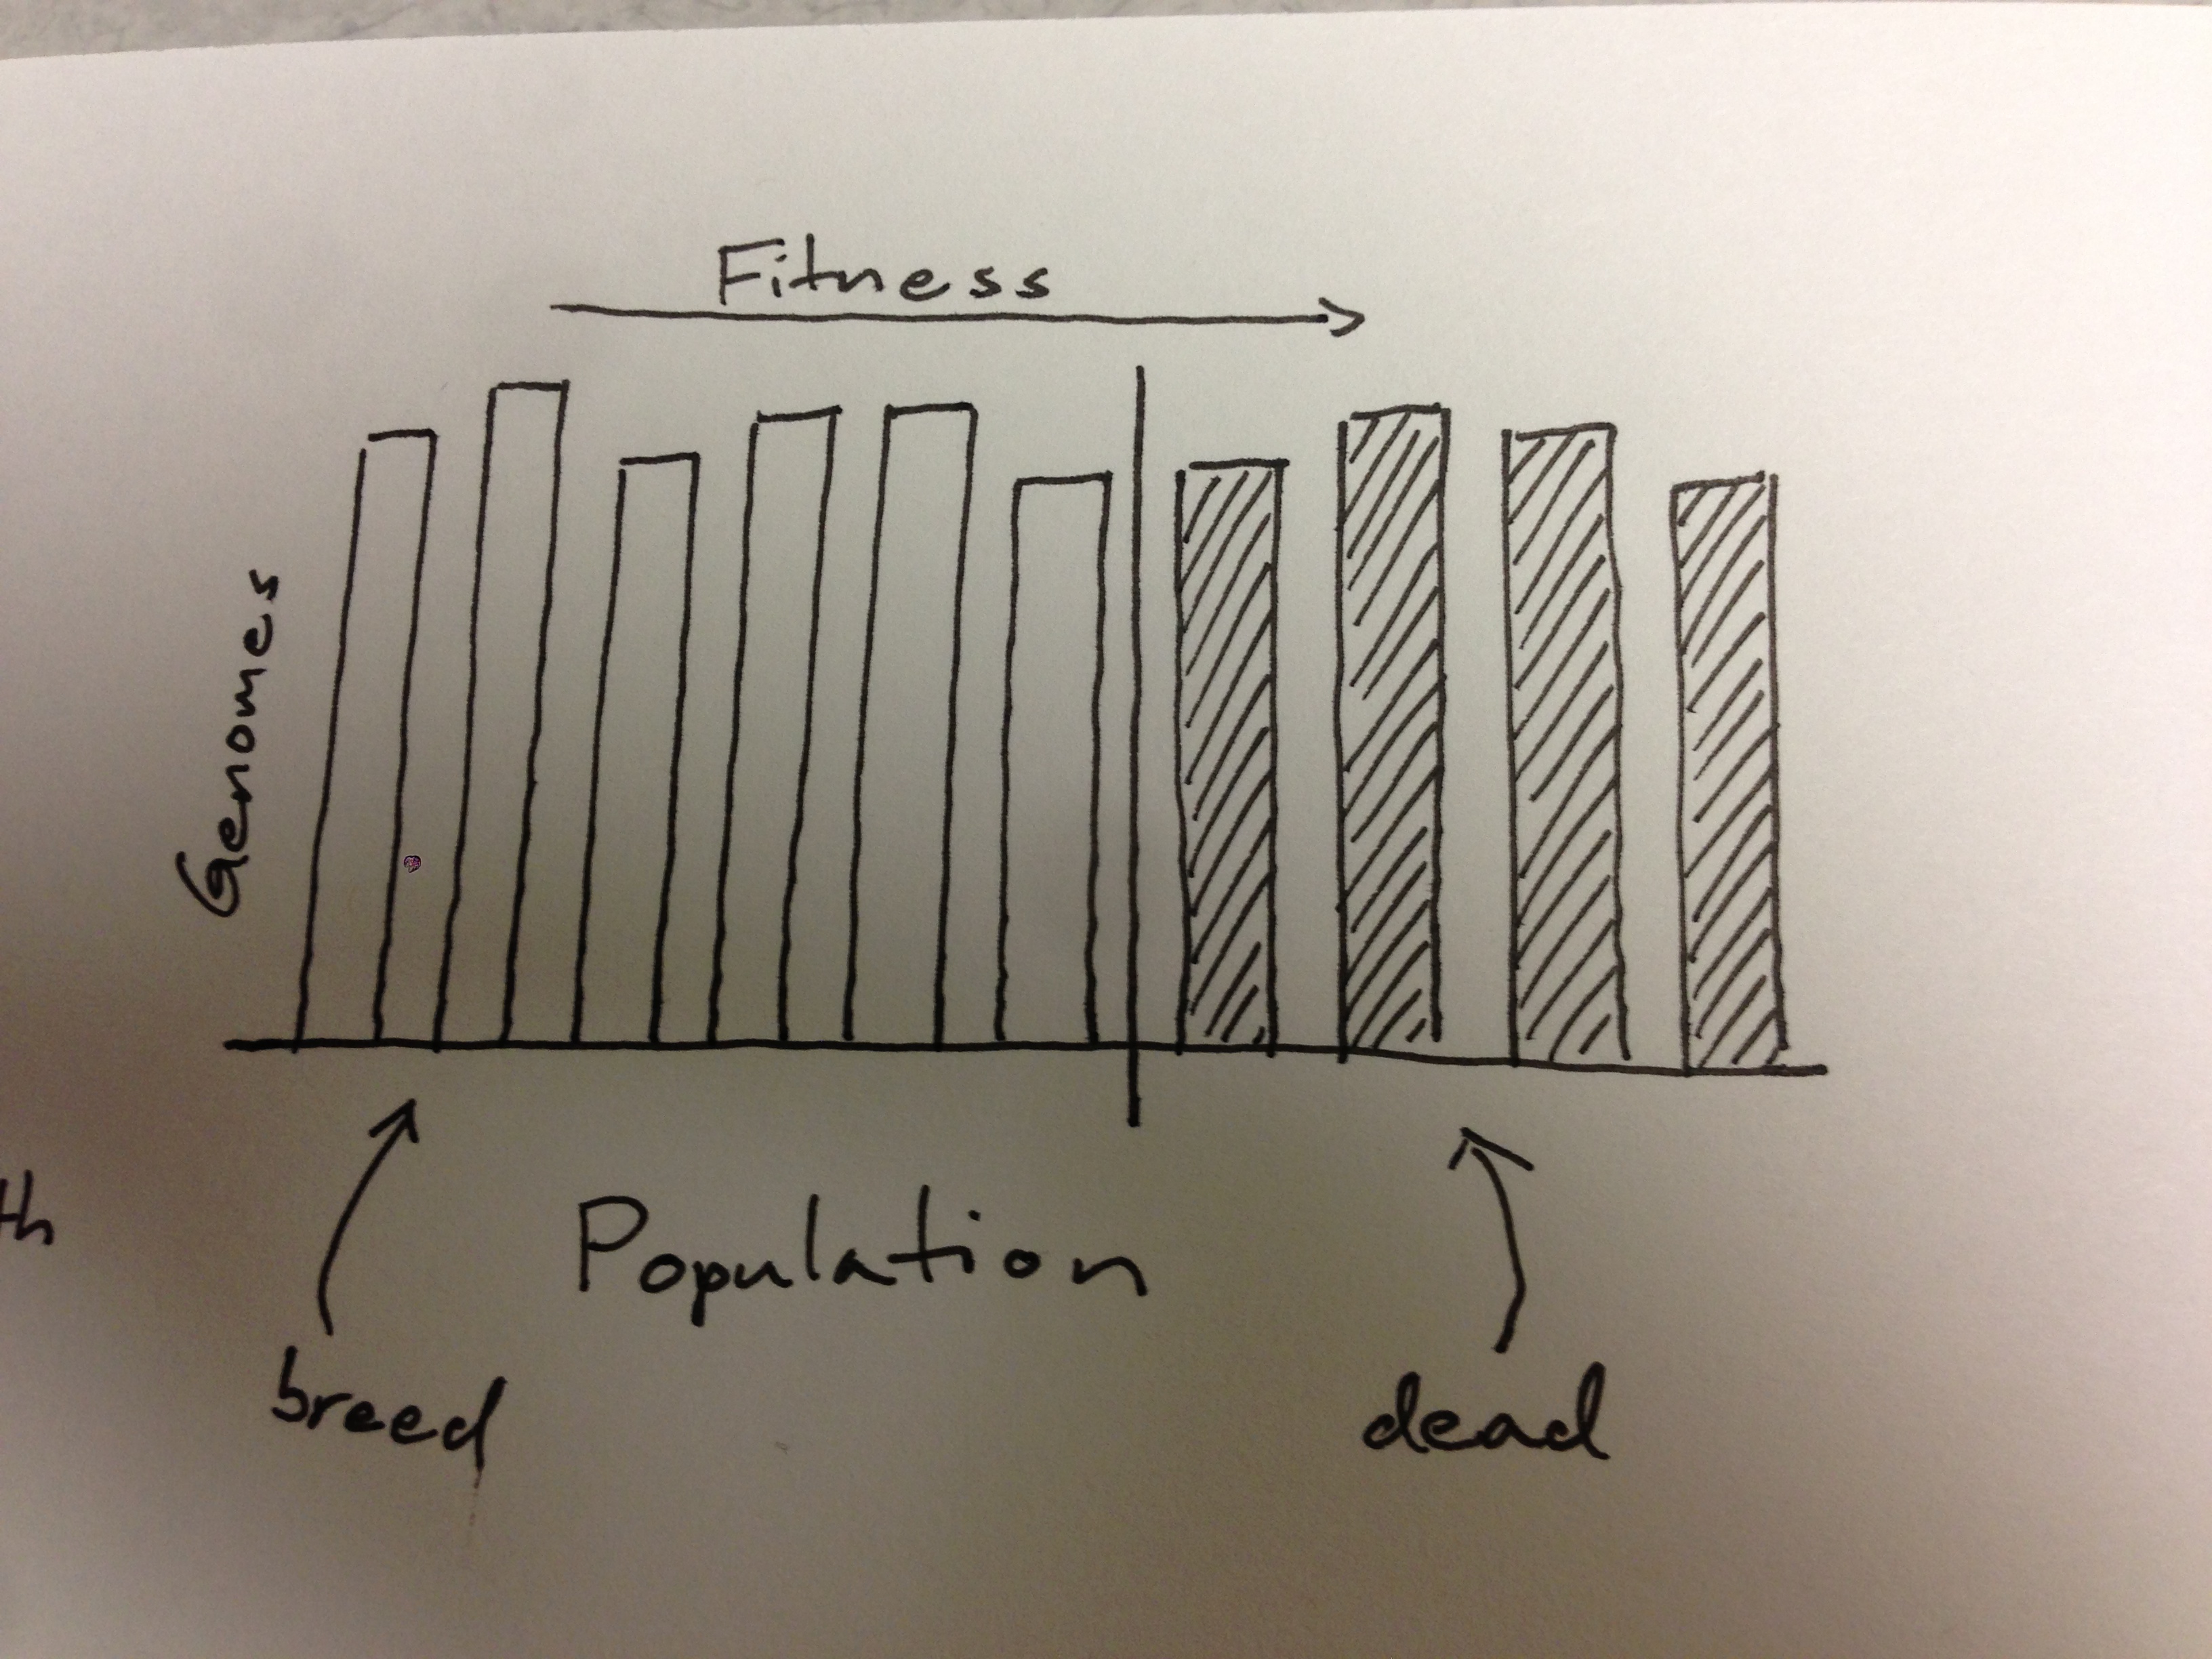 Fitness
Genomes
th
Population
breed
dead